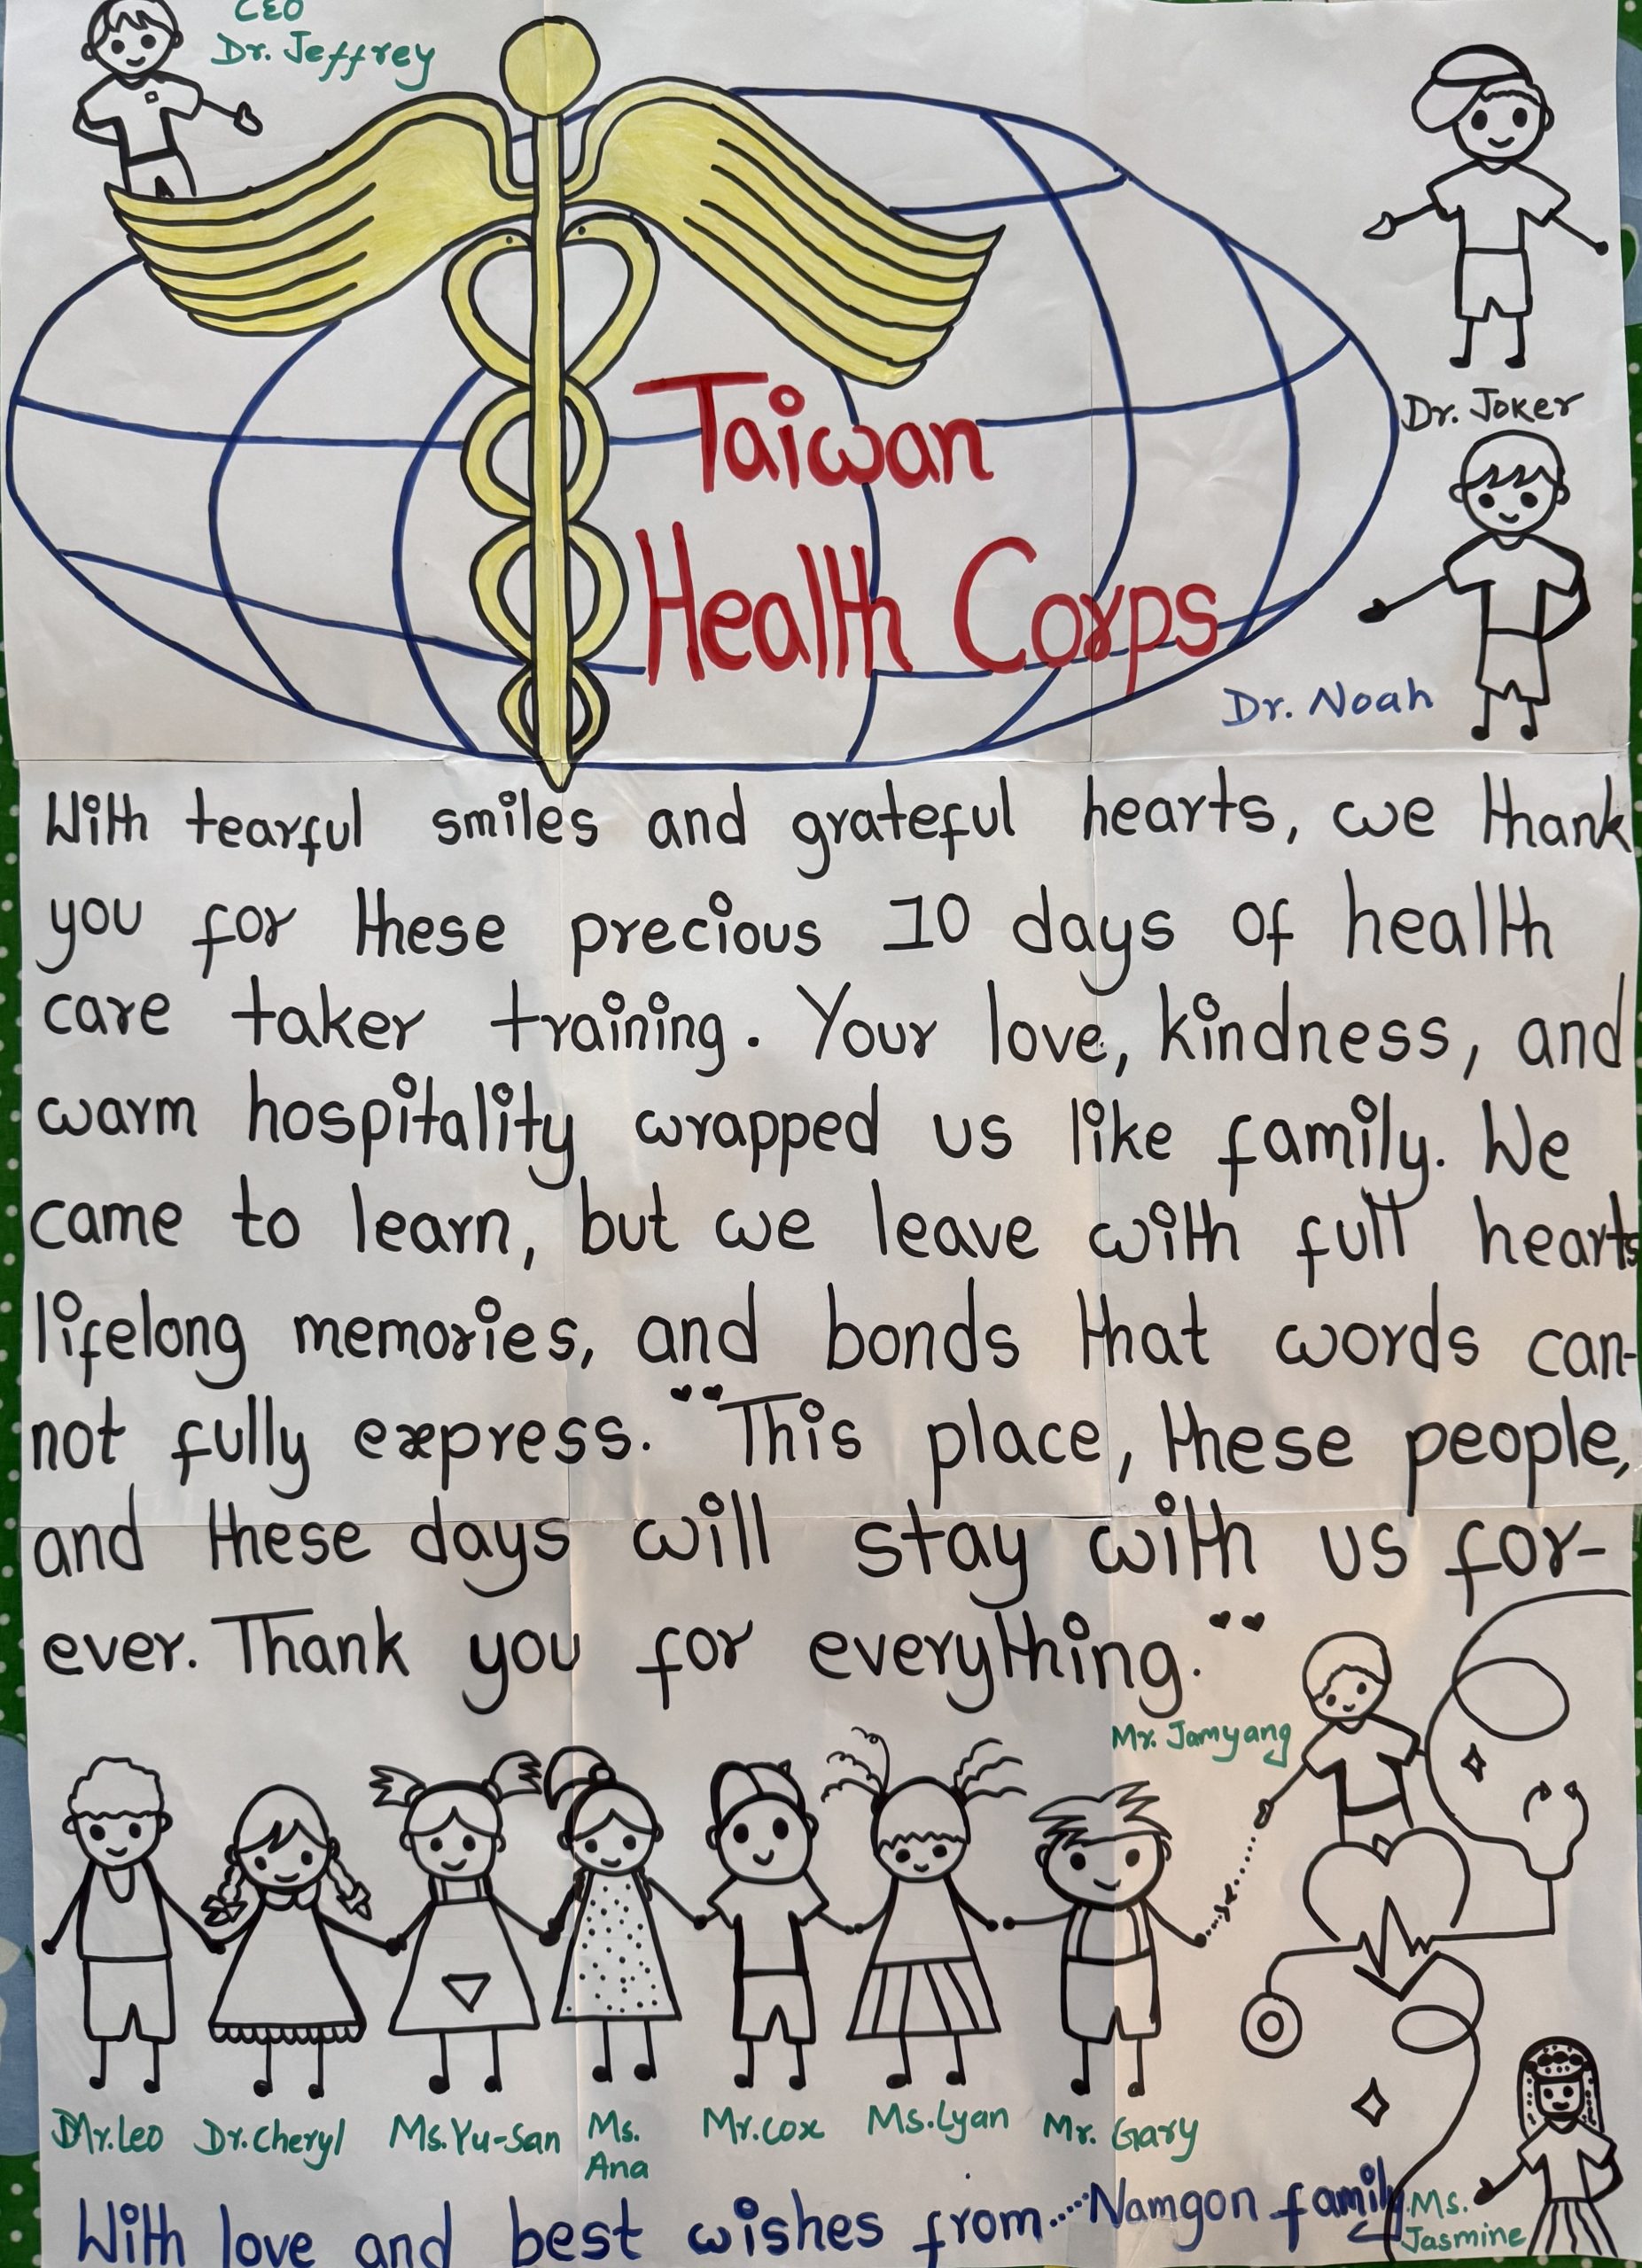 CEO
Dr. Jeffrey
Taiwan
Health Corps
Dr. Joker
Dr. Noah
With tearful smiles and grateful hearts, we thank
you for these precious 10 days of health
care taker training. Your love, kindness, and
warm hospitality wrapped us like family. We
came to learn, but we leave with full hearts
lifelong memories, and bonds that words can-
not fully express. "This place, these people,
and these days will stay with us for-
ever. Thank you for everything."
Mr. Jamyang
Mr. Leo
Dr. Cheryl
Ms. Yu-San
Ms.
Ana
Mr. Cox
Ms. Lyan
Mr. Gary
Ms.
Jasmine
With love and best wishes from... Namgon family